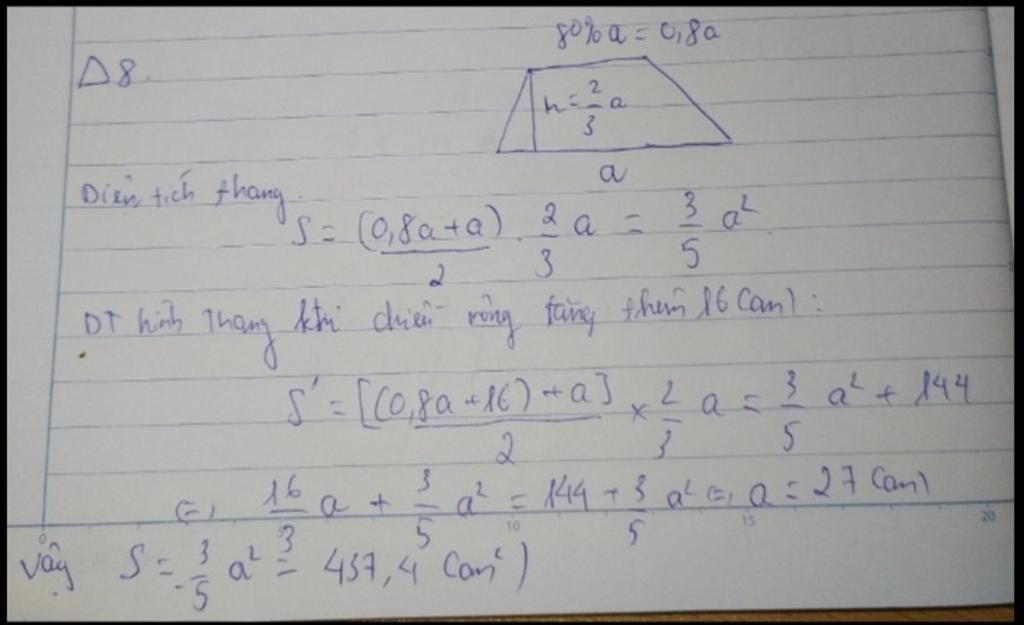 80%a = 0,8a
Δ8.
h = 2/3 a
a
Diện tích thang.
S = (0,8a+a)/2 . 2/3 a = 3/5 a²
DT hình Thang khi chiều rộng tăng thêm 16 (cm):
S' = [(0,8a+16)+a]/2 × 2/3 a = 3/5 a² + 144
⇔ 16/3 a + 3/5 a² = 144 + 3/5 a² ⇔ a = 27 (cm)
Vậy S = 3/5 a² = 437,4 (cm²)
0 10 15 20